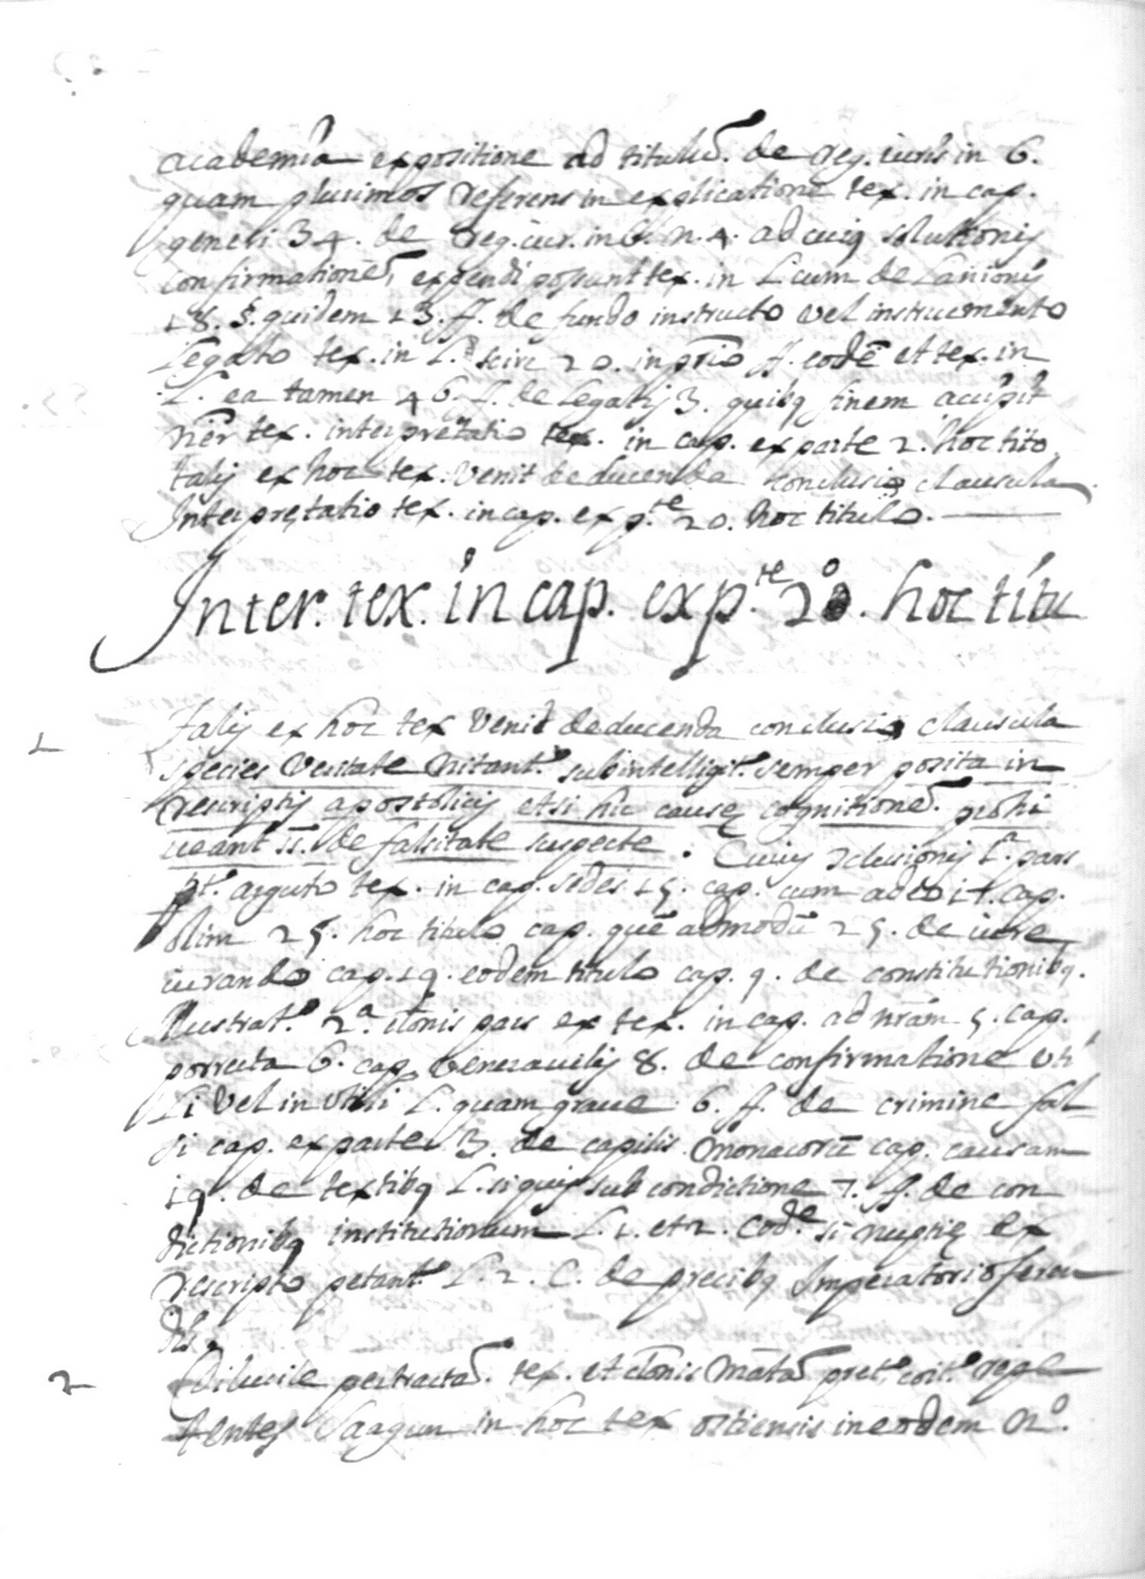 academia expositione ad titulũ. de reg. iuris in 6.
quam plurimos referens in explicatione tex. in cap.
generi 34. de reg. iur. in 6. n. 4. ad cuiq solutionis
confirmationẽ, expendi possunt tex. in L. cum de Lanionis
18. §. quidem 13. ff. de fundo instructo vel instrumento
Legato tex. in L. seire 20. in prio ff. codẽ et tex. in
L. ea tamen 46. ff. de Legatis 3. quibq finem acipit
nẽr tex. interpretatio tex. in cap. ex parte 2. hoc tito
talis ex hoc tex. venit deducenda conclusio clausula
Interpretatio tex. in cap. ex p.te 20. hoc titulo.
Inter. tex. in cap. ex p.te 20. hoc titu
1 Talis ex hoc tex venit deducenda conclusio clausula
species veritate nitant.r subintelligit.r semper posita in
rescriptis apostolicis etsi hic causę cognitionẽ prohi
ueant ss. de falsitate suspecte. Cuius clusionis 1.a pars
p.t. argunto tex. in cap. sedes 15. cap. cum adeo 17. cap.
olim 25. hoc titulo cap. quẽ admodũ 25. de iure
iurando cap. 19. eodem titulo cap. 9. de constitutionibq.
Ilustrat.r 2.a clonis pars ex tex. in cap. ad nrãm 5. cap.
porrecta 6. cap. Venerauilis 8. de confirmatione uti
Li vel in utili L. quam graue 6. ff. de crimine fal
si cap. ex parte 3. de capilis monacorũ cap. causam
19. de textibq L. si quis sub condictione 7. ff. de con
dictionibq institutionum L. 1. et 2. Cod.e si nuptię ex
rescripto petant.r L. 2. C. de precibq Imperatori oferen
dis.
2 Dilucile pertractã. tex. et clonis matã pret. cort. regl
tentes Saagun in hoc tex ostiensis in eodem n.o